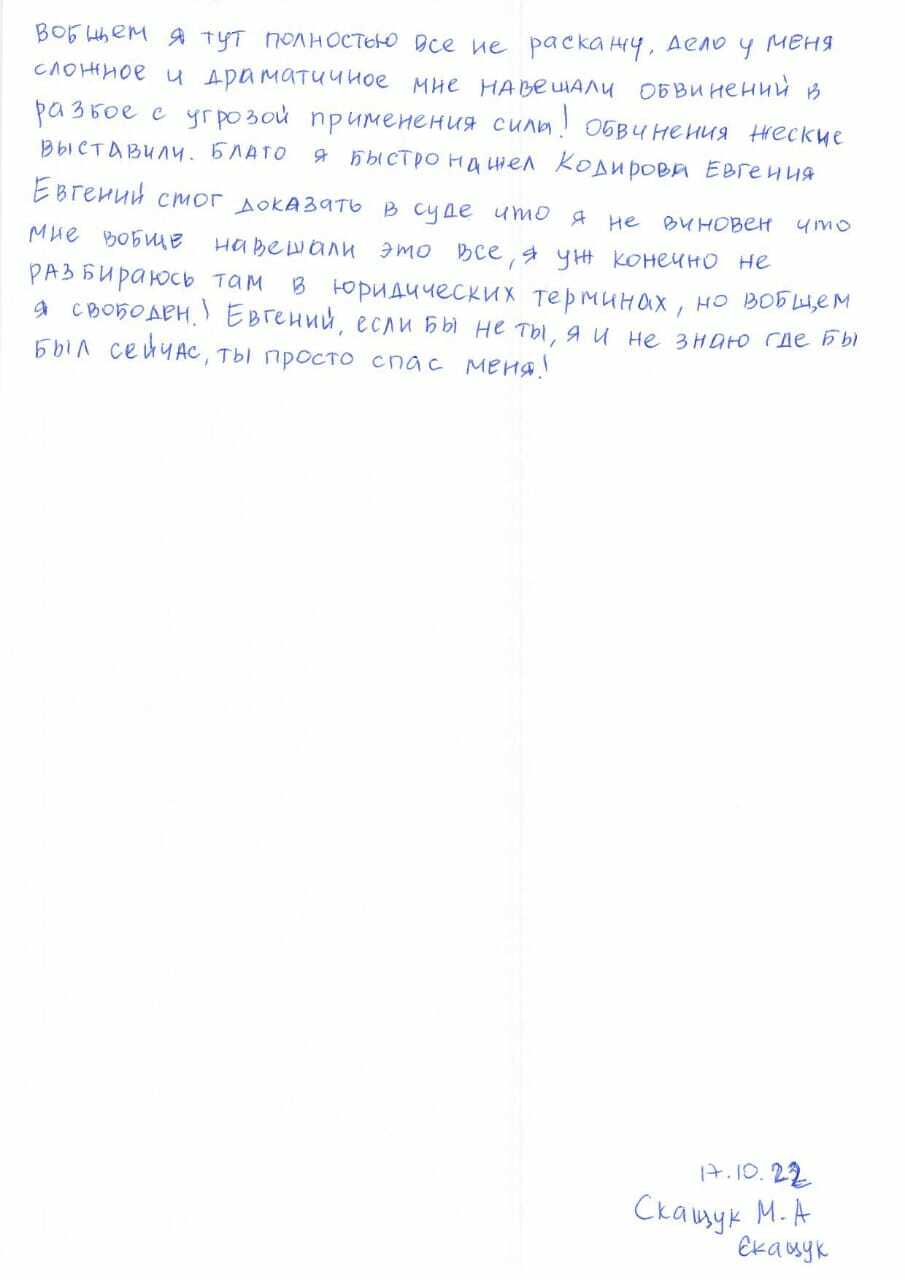 вобщем я тут полностью все не раскажу, дело у меня
сложное и драматичное мне навешали обвинений в
разбое с угрозой применения силы! Обвинения жеские
выставили. Благо я быстро нашел Кодирова Евгения
Евгений смог доказать в суде что я не виновен что
мне вобще навешали это все, я уж конечно не
разбираюсь там в юридических терминах, но вобщем
я свободен! Евгений, если бы не ты, я и не знаю где бы
был сейчас, ты просто спас меня!
17.10.22
Скащук М.А
Скащук